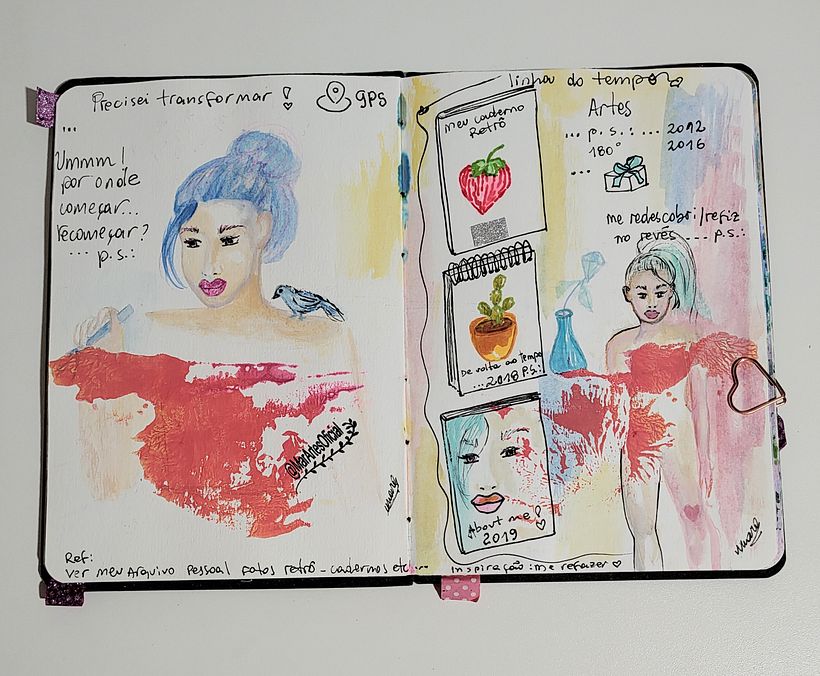 Precisei transformar!
GPS
...
Ummm!
por onde
começar...
recomeçar?
... p.s.:
@MarArtesOficial
Ref:
ver meu Arquivo Pessoal fotos retrô - cadernos etc...
linha do tempo
meu caderno
Retrô
Artes
... p.s.: ... 2012
180° 2016
...
me redescobri/refiz
no revés .... p.s.:
De volta ao tempo
...2018 P.s.:
About me!
2019
inspiração: me refazer